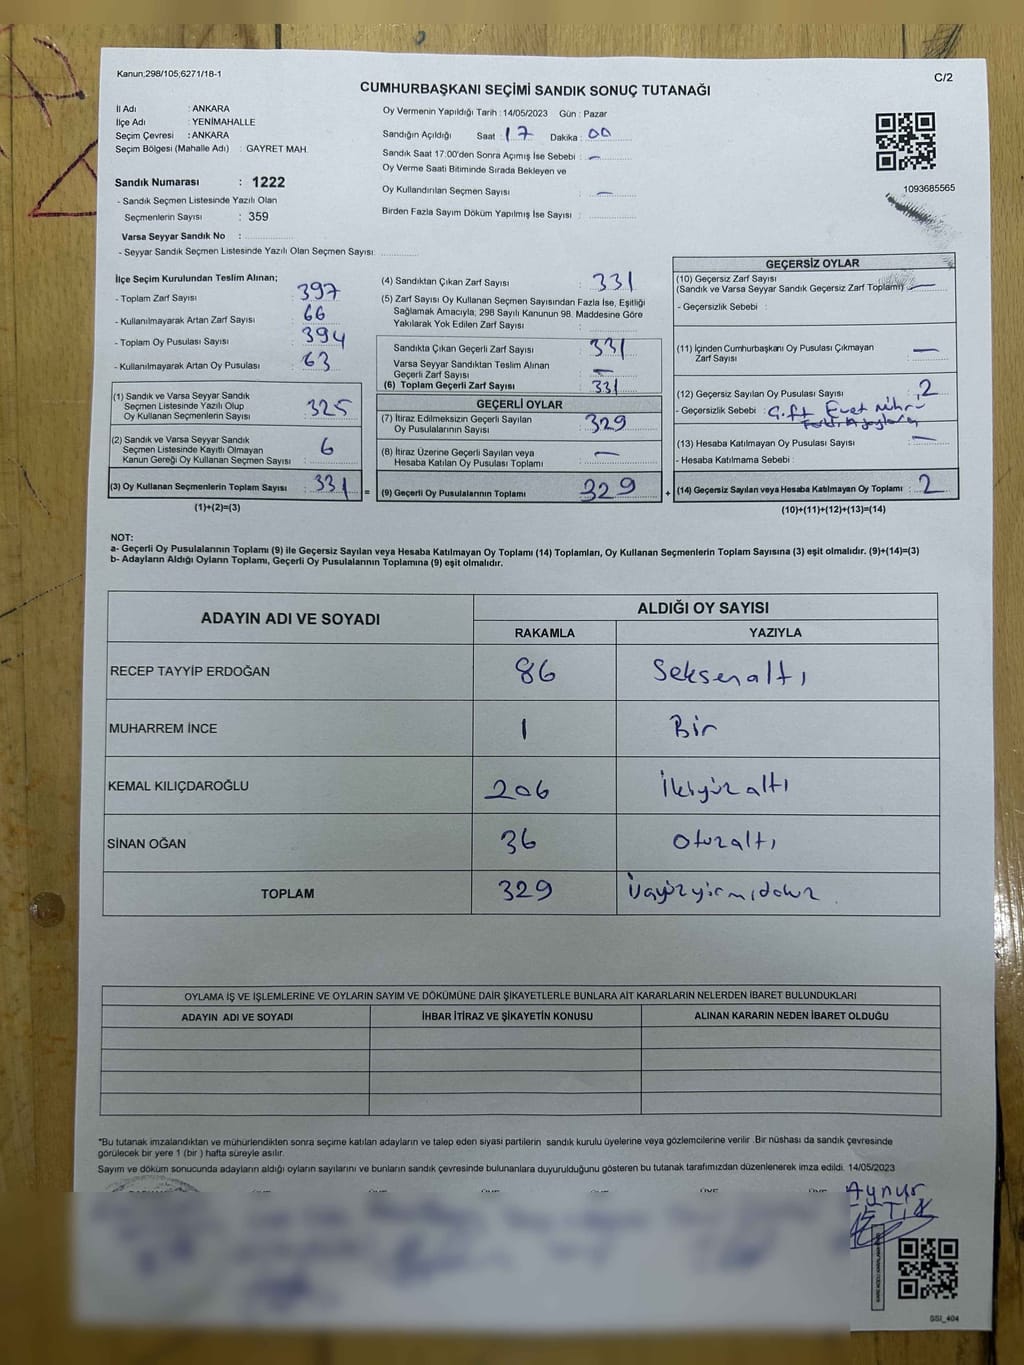 Kanun,298/105,6271/18-1
C/2
CUMHURBAŞKANI SEÇİMİ SANDIK SONUÇ TUTANAĞI
İl Adı : ANKARA
İlçe Adı : YENİMAHALLE
Seçim Çevresi : ANKARA
Seçim Bölgesi (Mahalle Adı) : GAYRET MAH.
Sandık Numarası : 1222
- Sandık Seçmen Listesinde Yazılı Olan
Seçmenlerin Sayısı : 359
Varsa Seyyar Sandık No :
- Seyyar Sandık Seçmen Listesinde Yazılı Olan Seçmen Sayısı:
Oy Vermenin Yapıldığı Tarih : 14/05/2023 Gün : Pazar
Sandığın Açıldığı Saat : 17 Dakika : 00
Sandık Saat 17:00'den Sonra Açımış İse Sebebi : -
Oy Verme Saati Bitiminde Sırada Bekleyen ve
Oy Kullandırılan Seçmen Sayısı : -
Birden Fazla Sayım Döküm Yapılmış İse Sayısı :
1093685565
İlçe Seçim Kurulundan Teslim Alınan;
- Toplam Zarf Sayısı : 397
- Kullanılmayarak Artan Zarf Sayısı : 66
- Toplam Oy Pusulası Sayısı : 394
- Kullanılmayarak Artan Oy Pusulası : 63
(1) Sandık ve Varsa Seyyar Sandık
Seçmen Listesinde Yazılı Olup
Oy Kullanan Seçmenlerin Sayısı : 325
(2) Sandık ve Varsa Seyyar Sandık
Seçmen Listesinde Kayıtlı Olmayan
Kanun Gereği Oy Kullanan Seçmen Sayısı : 6
(3) Oy Kullanan Seçmenlerin Toplam Sayısı : 331
(1)+(2)=(3)
(4) Sandıktan Çıkan Zarf Sayısı : 331
(5) Zarf Sayısı Oy Kullanan Seçmen Sayısından Fazla İse, Eşitliği
Sağlamak Amacıyla, 298 Sayılı Kanunun 98. Maddesine Göre
Yakılarak Yok Edilen Zarf Sayısı :
Sandıkta Çıkan Geçerli Zarf Sayısı : 331
Varsa Seyyar Sandıktan Teslim Alınan
Geçerli Zarf Sayısı : -
(6) Toplam Geçerli Zarf Sayısı : 331
GEÇERLİ OYLAR
(7) İtiraz Edilmeksizin Geçerli Sayılan
Oy Pusulalarının Sayısı : 329
(8) İtiraz Üzerine Geçerli Sayılan veya
Hesaba Katılan Oy Pusulası Toplamı : -
= (9) Geçerli Oy Pusulalarının Toplamı : 329
GEÇERSİZ OYLAR
(10) Geçersiz Zarf Sayısı
(Sandık ve Varsa Seyyar Sandık Geçersiz Zarf Toplamı) : -
- Geçersizlik Sebebi :
(11) İçinden Cumhurbaşkanı Oy Pusulası Çıkmayan
Zarf Sayısı : -
(12) Geçersiz Sayılan Oy Pusulası Sayısı : 2
- Geçersizlik Sebebi : Çift Evet Mührü
(13) Hesaba Katılmayan Oy Pusulası Sayısı : -
- Hesaba Katılmama Sebebi :
+ (14) Geçersiz Sayılan veya Hesaba Katılmayan Oy Toplamı : 2
(10)+(11)+(12)+(13)=(14)
NOT:
a- Geçerli Oy Pusulalarının Toplamı (9) ile Geçersiz Sayılan veya Hesaba Katılmayan Oy Toplamı (14) Toplamları, Oy Kullanan Seçmenlerin Toplam Sayısına (3) eşit olmalıdır. (9)+(14)=(3)
b- Adayların Aldığı Oyların Toplamı, Geçerli Oy Pusulalarının Toplamına (9) eşit olmalıdır.
ADAYIN ADI VE SOYADI
ALDIĞI OY SAYISI
RAKAMLA YAZIYLA
RECEP TAYYİP ERDOĞAN 86 Seksenaltı
MUHARREM İNCE 1 Bir
KEMAL KILIÇDAROĞLU 206 İkiyüzaltı
SİNAN OĞAN 36 Otuzaltı
TOPLAM 329 Üçyüzyirmidokuz
OYLAMA İŞ VE İŞLEMLERİNE VE OYLARIN SAYIM VE DÖKÜMÜNE DAİR ŞİKAYETLERLE BUNLARA AİT KARARLARIN NELERDEN İBARET BULUNDUKLARI
ADAYIN ADI VE SOYADI İHBAR İTİRAZ VE ŞİKAYETİN KONUSU ALINAN KARARIN NEDEN İBARET OLDUĞU
*Bu tutanak imzalandıktan ve mühürlendikten sonra seçime katılan adayların ve talep eden siyasi partilerin sandık kurulu üyelerine veya gözlemcilerine verilir .Bir nüshası da sandık çevresinde
görülecek bir yere 1 (bir ) hafta süreyle asılır.
Sayım ve döküm sonucunda adayların aldığı oyların sayılarını ve bunların sandık çevresinde bulunanlara duyurulduğunu gösteren bu tutanak tarafımızdan düzenlenerek imza edildi. 14/05/2023
Aynur
GSI_404